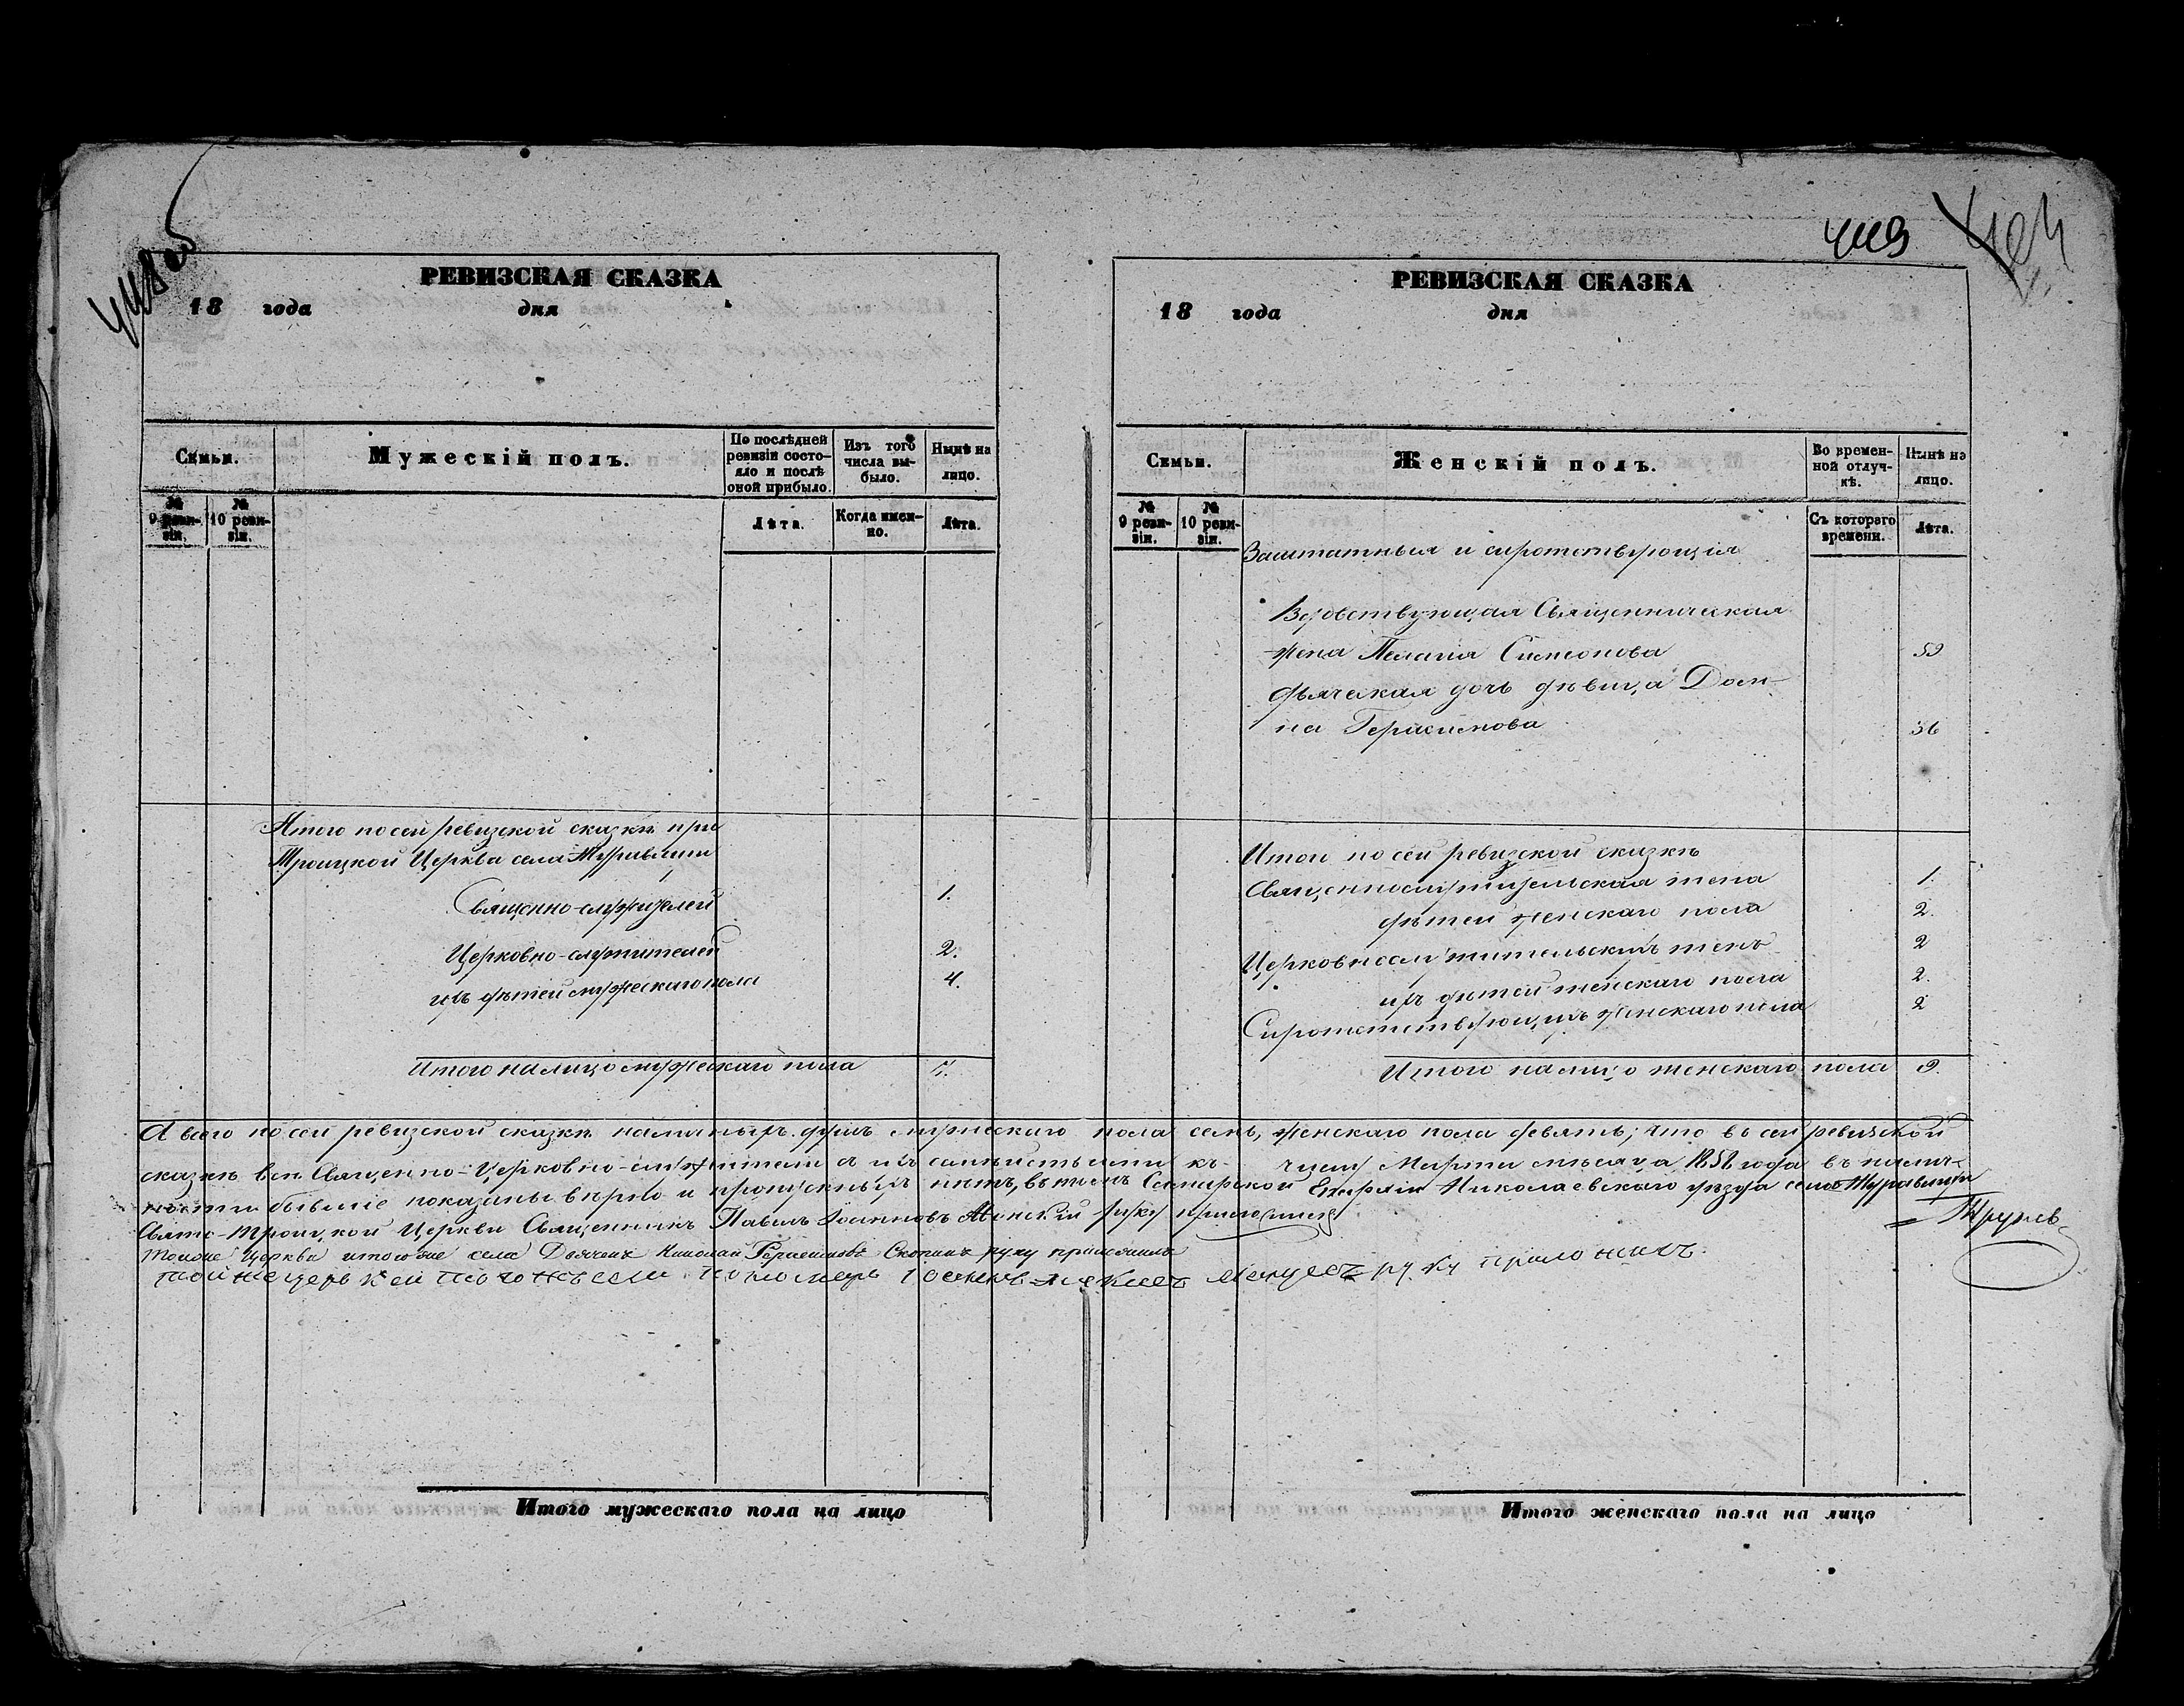 418 об
РЕВИЗСКАЯ СКАЗКА
18 года дня
Семьи.
Мужескій полъ.
По послѣдней ревизіи состояло и послѣ оной прибыло.
Изъ того числа выбыло.
Нынѣ на лицо.
№ 9 ревизіи.
№ 10 ревизіи.
Лѣта.
Когда именно.
Лѣта.
Итого по сей ревизской сказкѣ при
Троицкой Церкви села Журавлихи
Священно-служителей 1.
Церковно-служителей 2.
ихъ дѣтей мужескаго пола 4.
Итого налицо мужескаго пола 7.
419
РЕВИЗСКАЯ СКАЗКА
18 года дня
Семьи.
Женскій полъ.
Во временной отлучкѣ.
Нынѣ на лицо.
№ 9 ревизіи.
№ 10 ревизіи.
Съ котораго времени.
Лѣта.
Заштатныя и сиротствующія
Вдовствующая Священническая
жена Пелагія Симеонова 59
дьяческая дочь дѣвица Дом-
на Герасимова 36
Итого по сей ревизской сказкѣ
Священнослужительская жена 1.
дѣтей женскаго пола 2.
Церковнослужительскихъ женъ 2
ихъ дѣтей женскаго пола 2.
Сиротствующихъ женскаго пола 2
Итого налицо женскаго пола 9.
А всего по сей ревизской сказкѣ наличныхъ душъ мужескаго пола семь, женскаго пола девять; что въ сей ревизской
сказкѣ всѣ Священно-Церковно-служители съ ихъ семѣйствами къ числу Марта мѣсяца 1858 года въ налич-
ности бывшіе показаны вѣрно и пропускныхъ нѣтъ, въ томъ Самарской Епархіи Николаевскаго уѣзда села Журавлихи
Свято-Троицкой Церкви Священникъ Павелъ Іоанновъ руку приложилъ
Тойже Церкви тогоже села Дьячекъ Николай Герасимовъ Скопинъ руку приложилъ
тойже церькви тогожъ села пономарь руку приложилъ.
Итого мужескаго пола на лицо
Итого женскаго пола на лицо